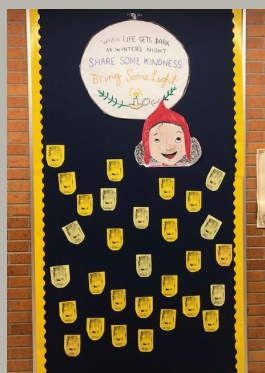 WHEN LIFE GETS DARK
AS WINTER'S NIGHT
SHARE SOME KINDNESS
Bring Some Light